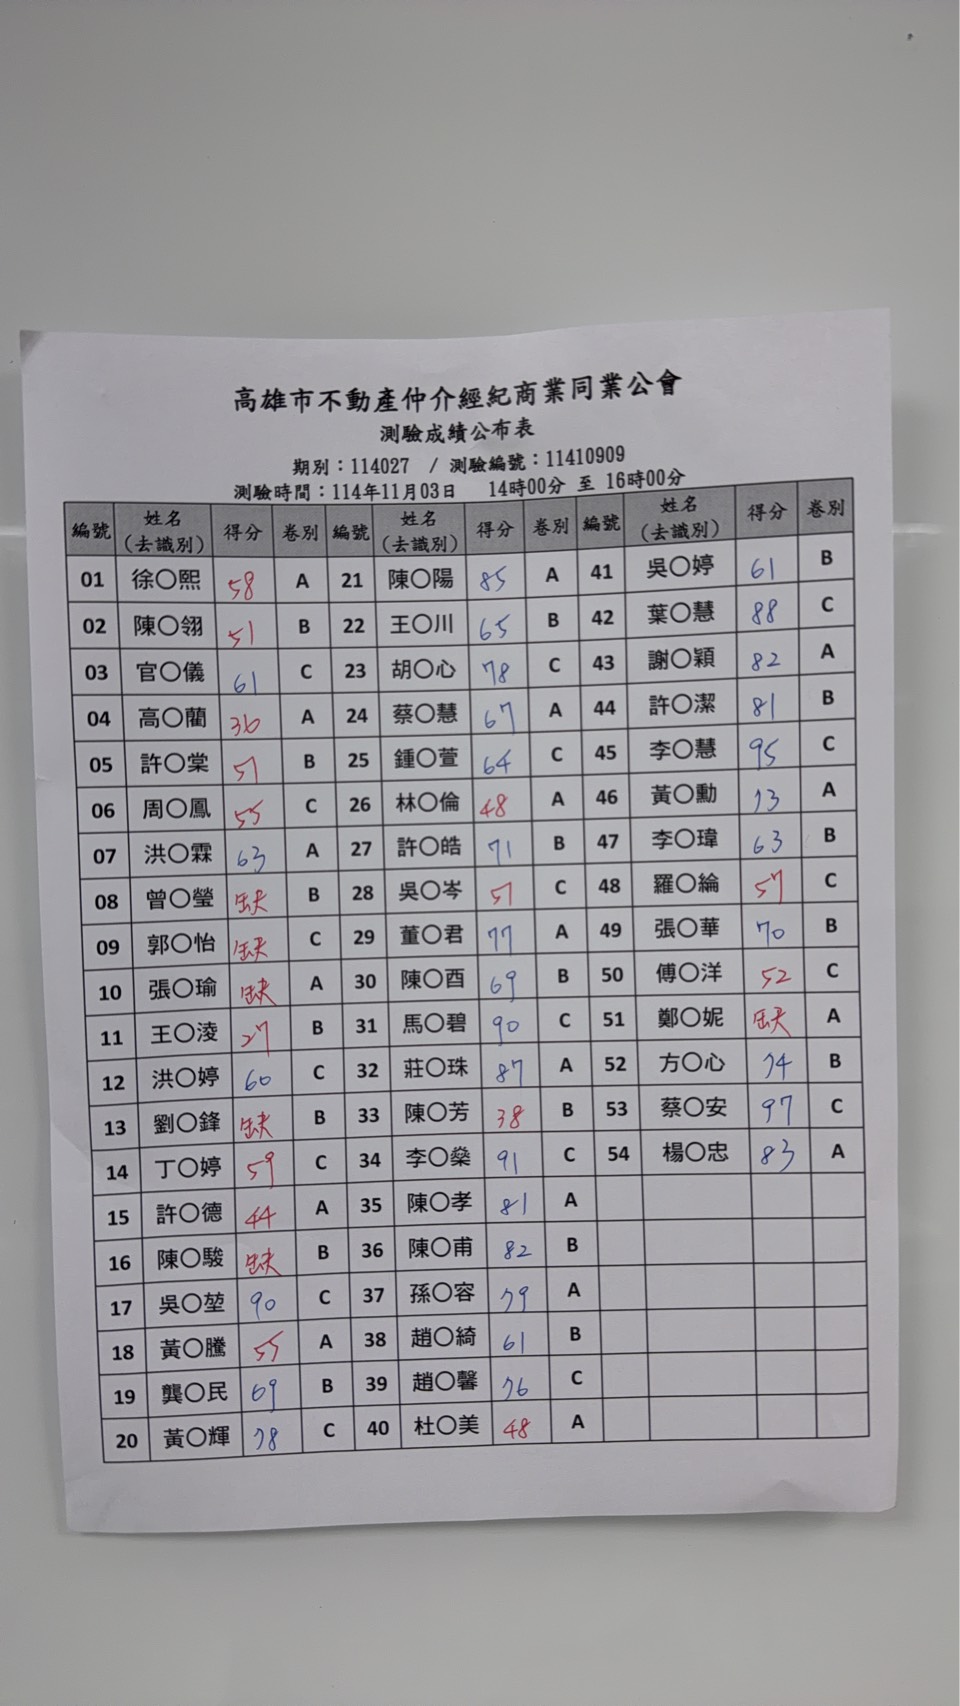 高雄市不動產仲介經紀商業同業公會
測驗成績公布表
期別：114027 / 測驗編號：11410909
測驗時間：114年11月03日 14時00分 至 16時00分
編號 姓名（去識別） 得分 卷別 編號 姓名（去識別） 得分 卷別 編號 姓名（去識別） 得分 卷別
01 徐〇熙 58 A 21 陳〇陽 85 A 41 吳〇婷 61 B
02 陳〇翎 51 B 22 王〇川 65 B 42 葉〇慧 88 C
03 官〇儀 61 C 23 胡〇心 78 C 43 謝〇穎 82 A
04 高〇藺 36 A 24 蔡〇慧 67 A 44 許〇潔 81 B
05 許〇棠 57 B 25 鍾〇萱 64 C 45 李〇慧 95 C
06 周〇鳳 55 C 26 林〇倫 48 A 46 黃〇勳 73 A
07 洪〇霖 63 A 27 許〇皓 71 B 47 李〇瑋 63 B
08 曾〇瑩 缺 B 28 吳〇岑 57 C 48 羅〇綸 57 C
09 郭〇怡 缺 C 29 董〇君 77 A 49 張〇華 70 B
10 張〇瑜 缺 A 30 陳〇酉 69 B 50 傅〇洋 52 C
11 王〇淩 27 B 31 馬〇碧 90 C 51 鄭〇妮 缺 A
12 洪〇婷 60 C 32 莊〇珠 87 A 52 方〇心 74 B
13 劉〇鋒 缺 B 33 陳〇芳 38 B 53 蔡〇安 97 C
14 丁〇婷 59 C 34 李〇燊 91 C 54 楊〇忠 83 A
15 許〇德 44 A 35 陳〇孝 81 A
16 陳〇駿 缺 B 36 陳〇甫 82 B
17 吳〇堃 90 C 37 孫〇容 79 A
18 黃〇騰 55 A 38 趙〇綺 61 B
19 龔〇民 69 B 39 趙〇馨 76 C
20 黃〇輝 78 C 40 杜〇美 48 A